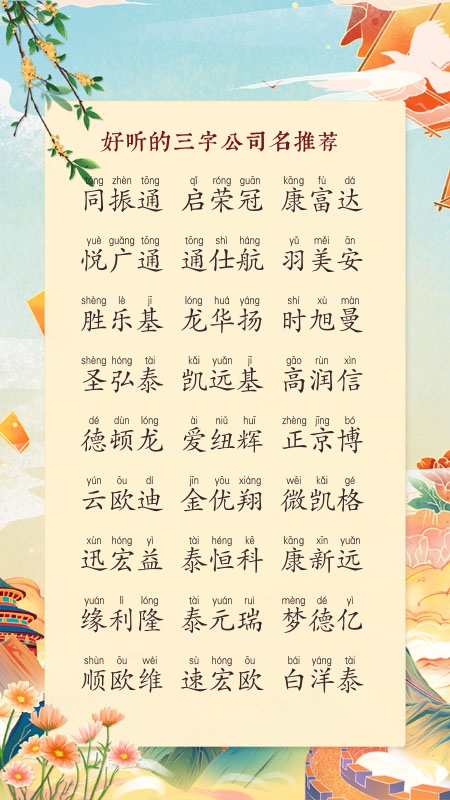 好听的三字公司名推荐
tóng zhèn tōng qǐ róng guān kāng fù dá
同振通 启荣冠 康富达
yuè guǎng tōng tōng shì háng yǔ měi ān
悦广通 通仕航 羽美安
shèng lè jī lóng huá yáng shí xù màn
胜乐基 龙华扬 时旭曼
shèng hóng tài kǎi yuǎn jī gāo rùn xìn
圣弘泰 凯远基 高润信
dé dùn lóng ài niǔ huī zhèng jīng bó
德顿龙 爱纽辉 正京博
yún ōu dí jīn yōu xiáng wēi kǎi gé
云欧迪 金优翔 微凯格
xùn hóng yì tài héng kē kāng xīn yuǎn
迅宏益 泰恒科 康新远
yuán lì lóng tài yuán ruì mèng dé yì
缘利隆 泰元瑞 梦德亿
shùn ōu wéi sù hóng ōu bái yáng tài
顺欧维 速宏欧 白洋泰